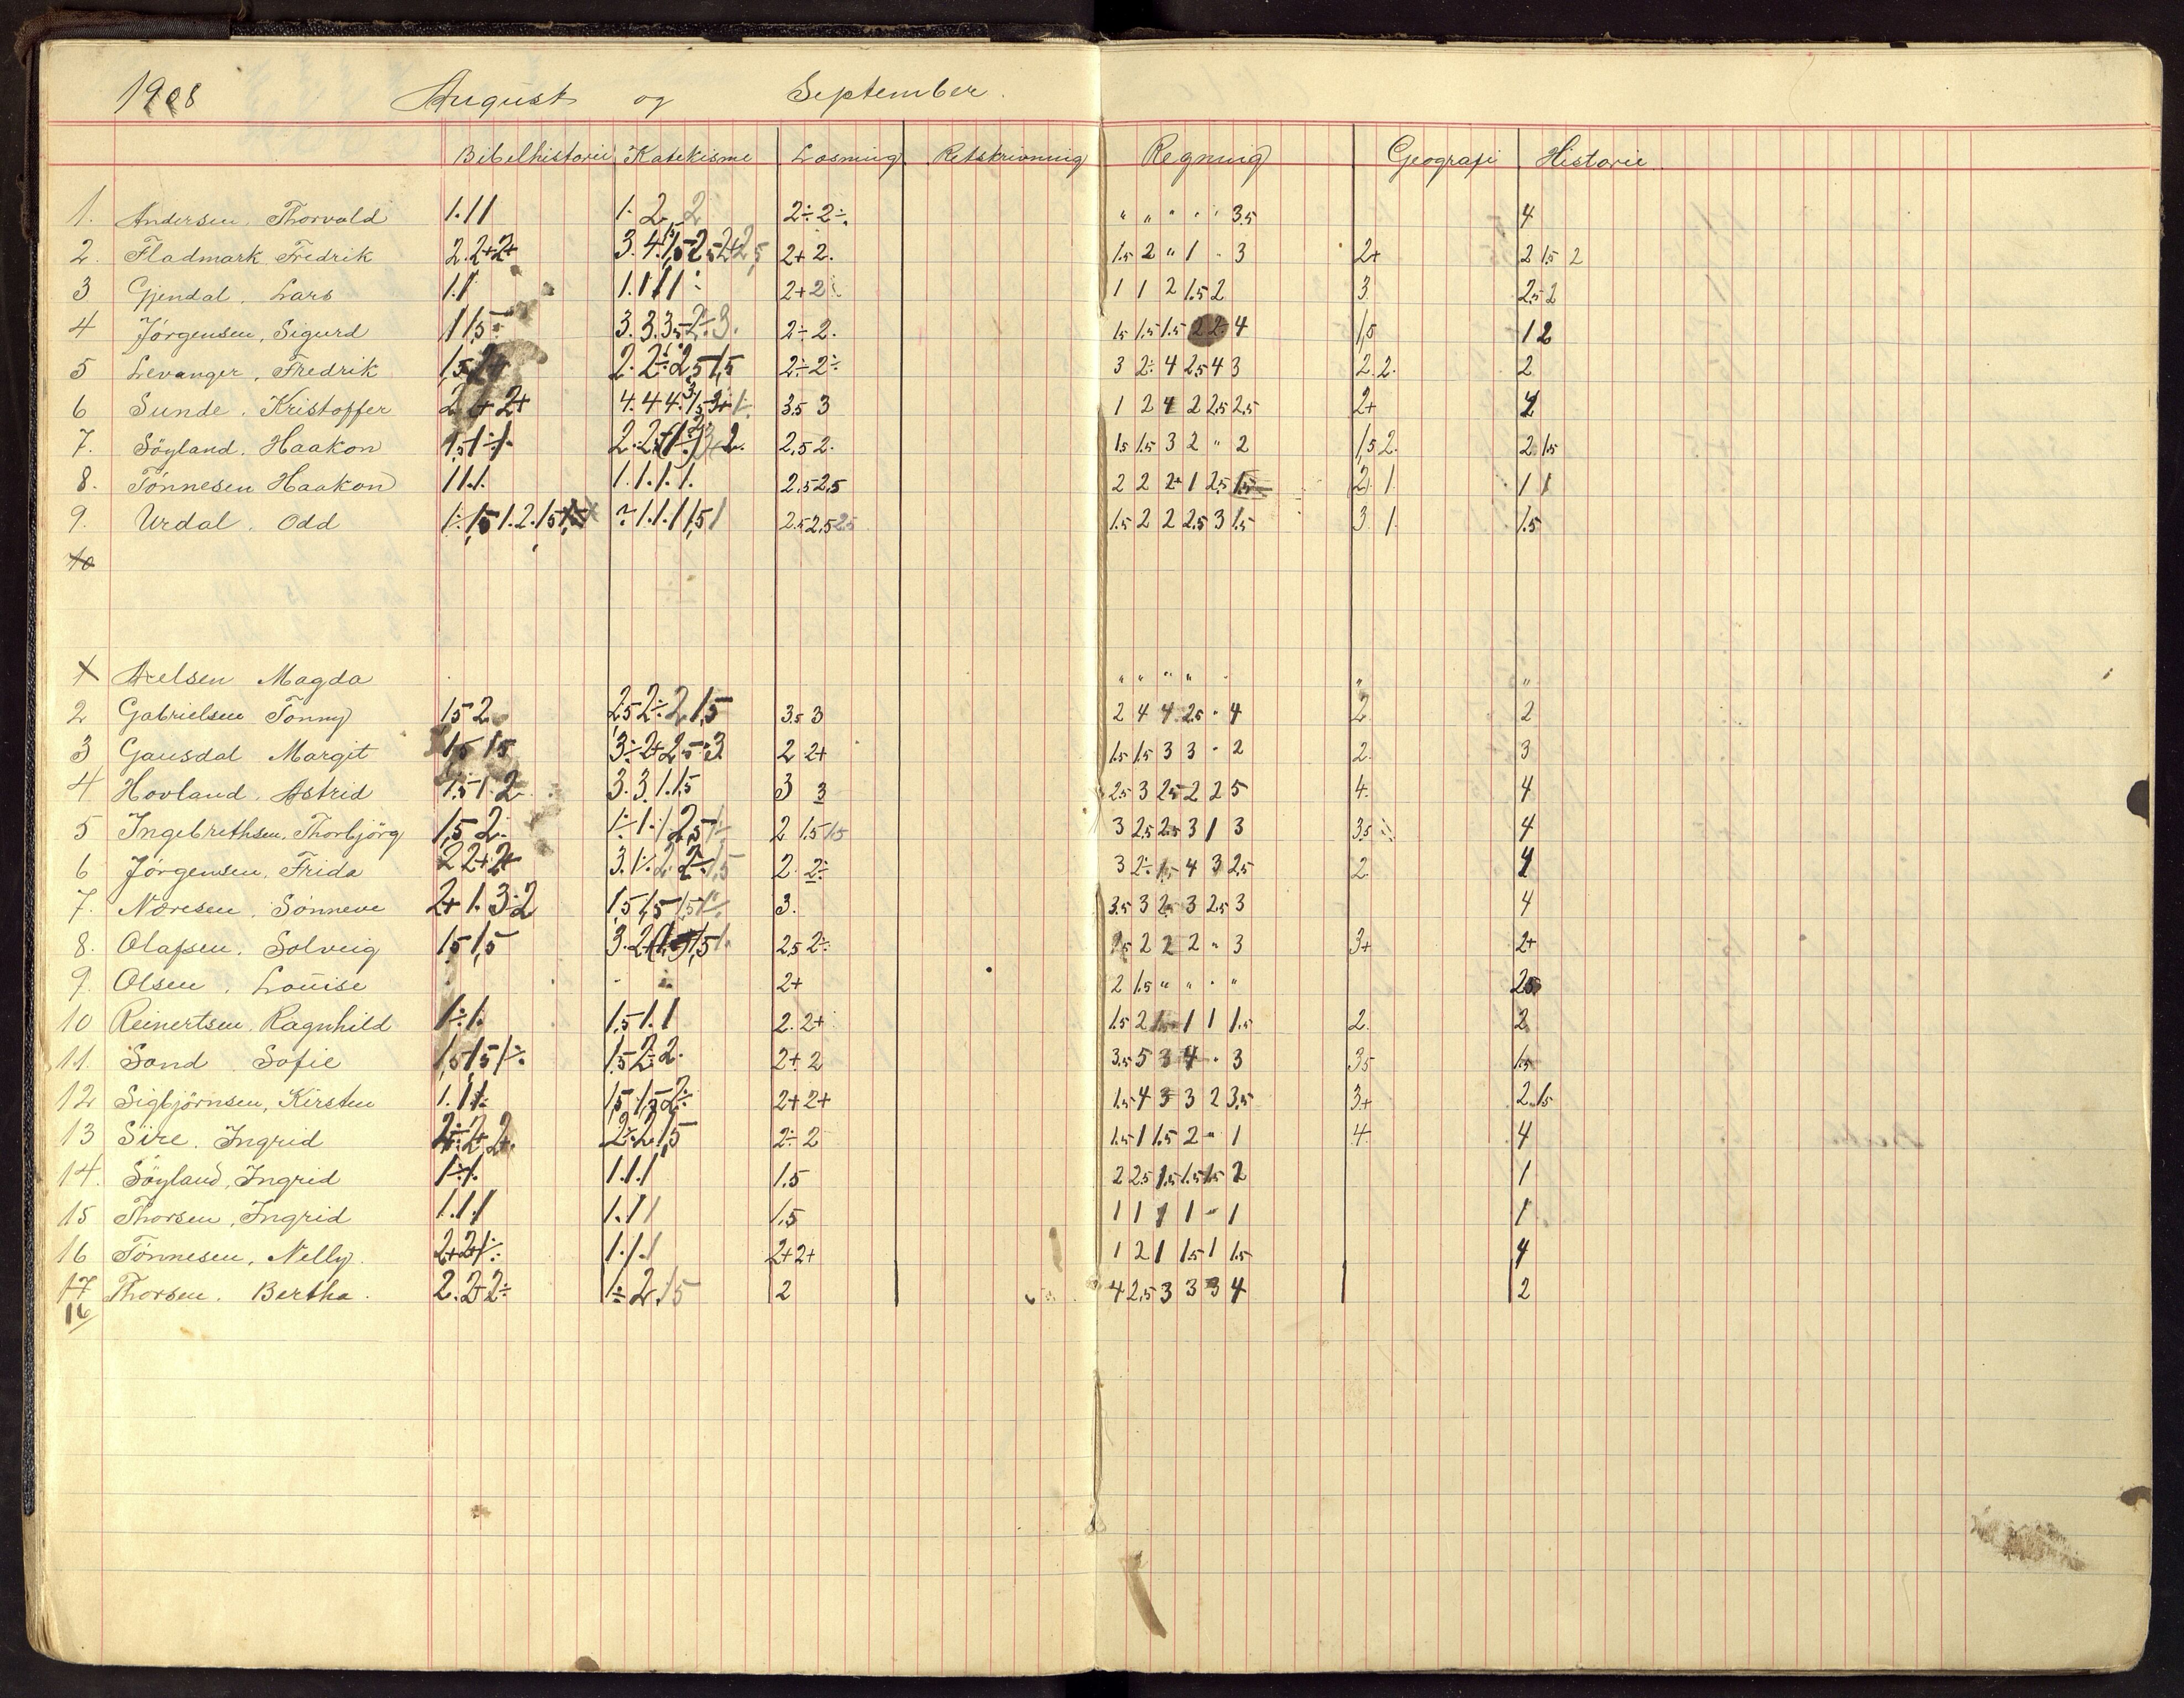 1908 August og September.
Bibelhistorie Katekisme Læsning Retskrivning Regning Geografi Historie
1. Andersen, Thorvald 1.11 1. 2. 2 2÷2÷. " " " " " 3.5 4
2. Fladmark Fredrik 2.2+2+ 2+2. 1.5 2 " 1 " 3 2+ 2 1.5 2
3 Gjendal, Lars 1.1 1.1 1 1 2+2 1 1 2 1.5 2 3 2.5 2
4 Jörgensen, Sigurd 1 1,5 2÷2. 1.5 1.5 1.5 2 2÷ 4 1,5 1 2
5 Levanger, Fredrik 2÷2÷ 3 2÷ 4 2.5 4 3 2.2. 2
6 Sunde, Kristoffer 3.5 3 1 2 4 2 2.5 2.5 2+
7. Söyland, Haakon 2.5 2. 1.5 1.5 3 2 " 2 1,5 2. 2 1.5
8. Tönnesen Haakon 11.1. 1.1.1.1. 2.5 2.5 2 2 2+ 1 2.5 1.5 2. 1 1 1
9. Urdal, Odd 2.5 2.5 2.5 1.5 2 2 2.5 3 1.5 3 1. 1.5
10
1 Axelsen Magda " " " " " " "
2 Gabrielsen Tonny 1.5 2. 2,5 2÷ 2 1,5 3.5 3 2 4 4 2.5 " 4 2 2
3 Gausdal Margit 1,5 1,5 3÷2+2,5÷3 2 2+ 1.5 1.5 3 3 " 2 2. 3
4 Hovland, Astrid 1.5 1. 2 3.3.1.1.5 3 3 2.5 3 2.5 2 2 5 4. 4
5 Ingebrethsen, Thorbjörg 1,5 2. 2 1.5 1.5 3 2.5 2.5 3 1 3 3.5 4
6 Jörgensen, Frida 2 2+2+ 2. 2÷ 3 2÷ 1.5 4 3 2.5 2. 4
7. Næresen, Sönneve 2+ 1. 3÷2 3. 3.5 3 2.5 3 2.5 3 4
8. Olafsen, Solveig 1.5 1,5 2.5 2÷ 2 2 2 " 3 3+ 2+
9. Olsen, Louise 2+ 2 1.5 " " " " 2.5
10 Reinertsen, Ragnhild 1÷1. 1,5 1.1 2. 2+ 1.5 2 1.5 1 1 1.5 2. 2
11. Sand, Sofie 1,5 1,5 1÷. 1,5 2÷2. 2+ 2 3.5 5 3 4 " 3 3.5 1.5
12 Sigbjörnsen, Kirsten 2+2+ 1.5 4 3 3 2 3.5 3+ 2.1.5
13 Sire, Ingrid 2÷2.1,5 2÷ 2 1.5 1 1.5 2 " 1 4. 4
14. Söyland, Ingrid 1÷1. 1.1.1 1.5 2 2.5 1.5 1.5 1.5 2 1
15 Thorsen, Ingrid 1.1.1 1.1 1 1.5 1 1 1 1 " 1 1
16 Tönnesen, Nelly. 2+2+1÷ 1.1.1 2+2+ 1 2 1 1.5 1 1.5 4
17 Thorsen, Bertha. 2.2+2÷ 1÷2.1.5 2 4 2.5 3 3 3 4 2
16